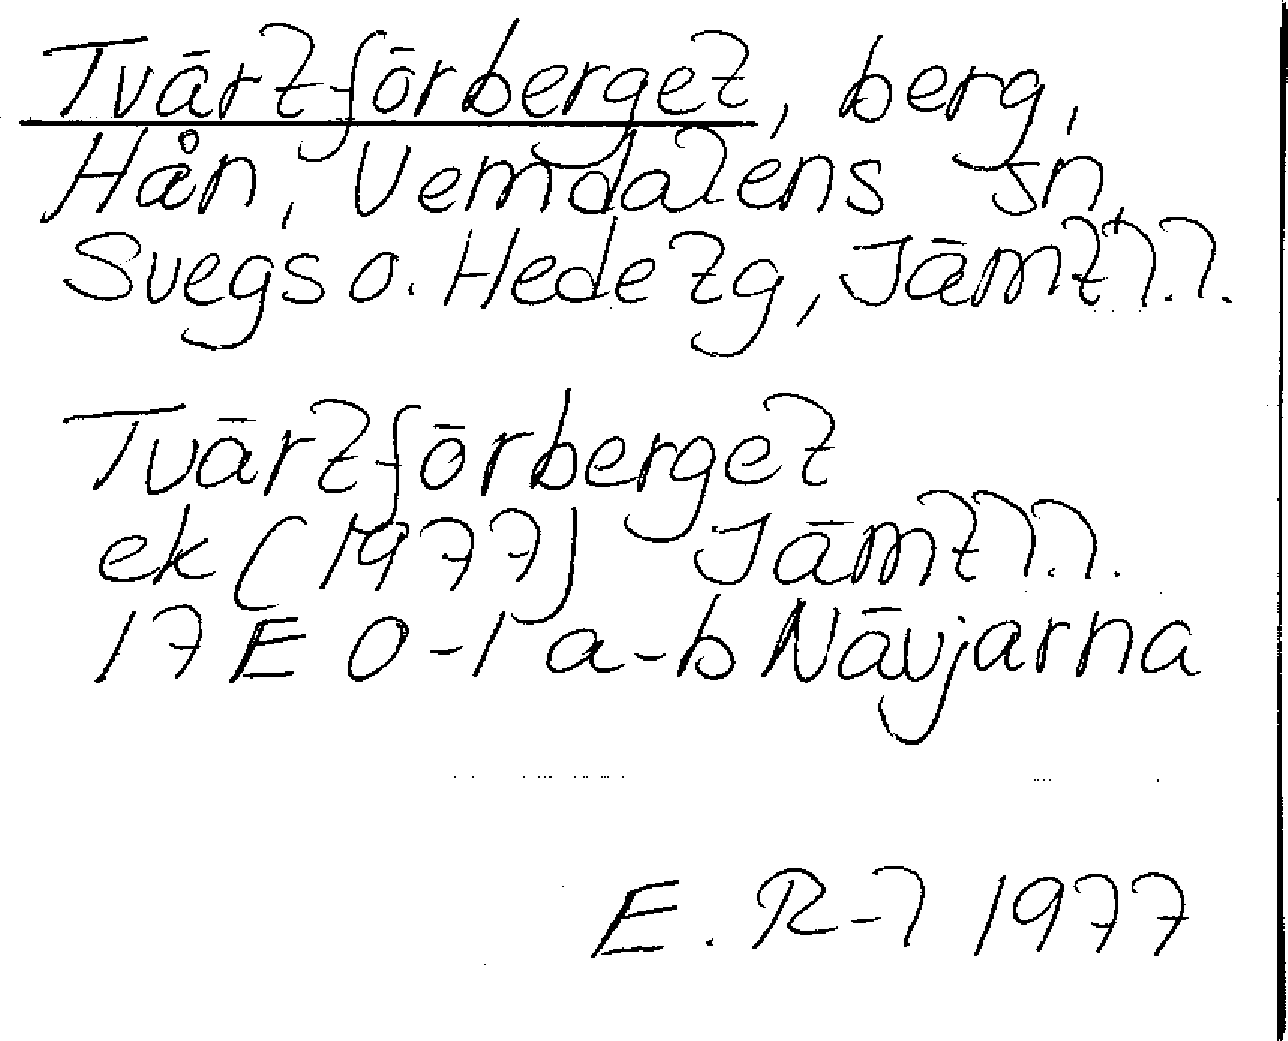 Tvärtförberget, berg,
Hån, Vemdalens sn,
Svegs o. Hede tg, Jämtl.l.
Tvärtförberget
ek (1977) Jämtl.l.
17E 0-1 a-b Nävjarna
E. R-l 1977